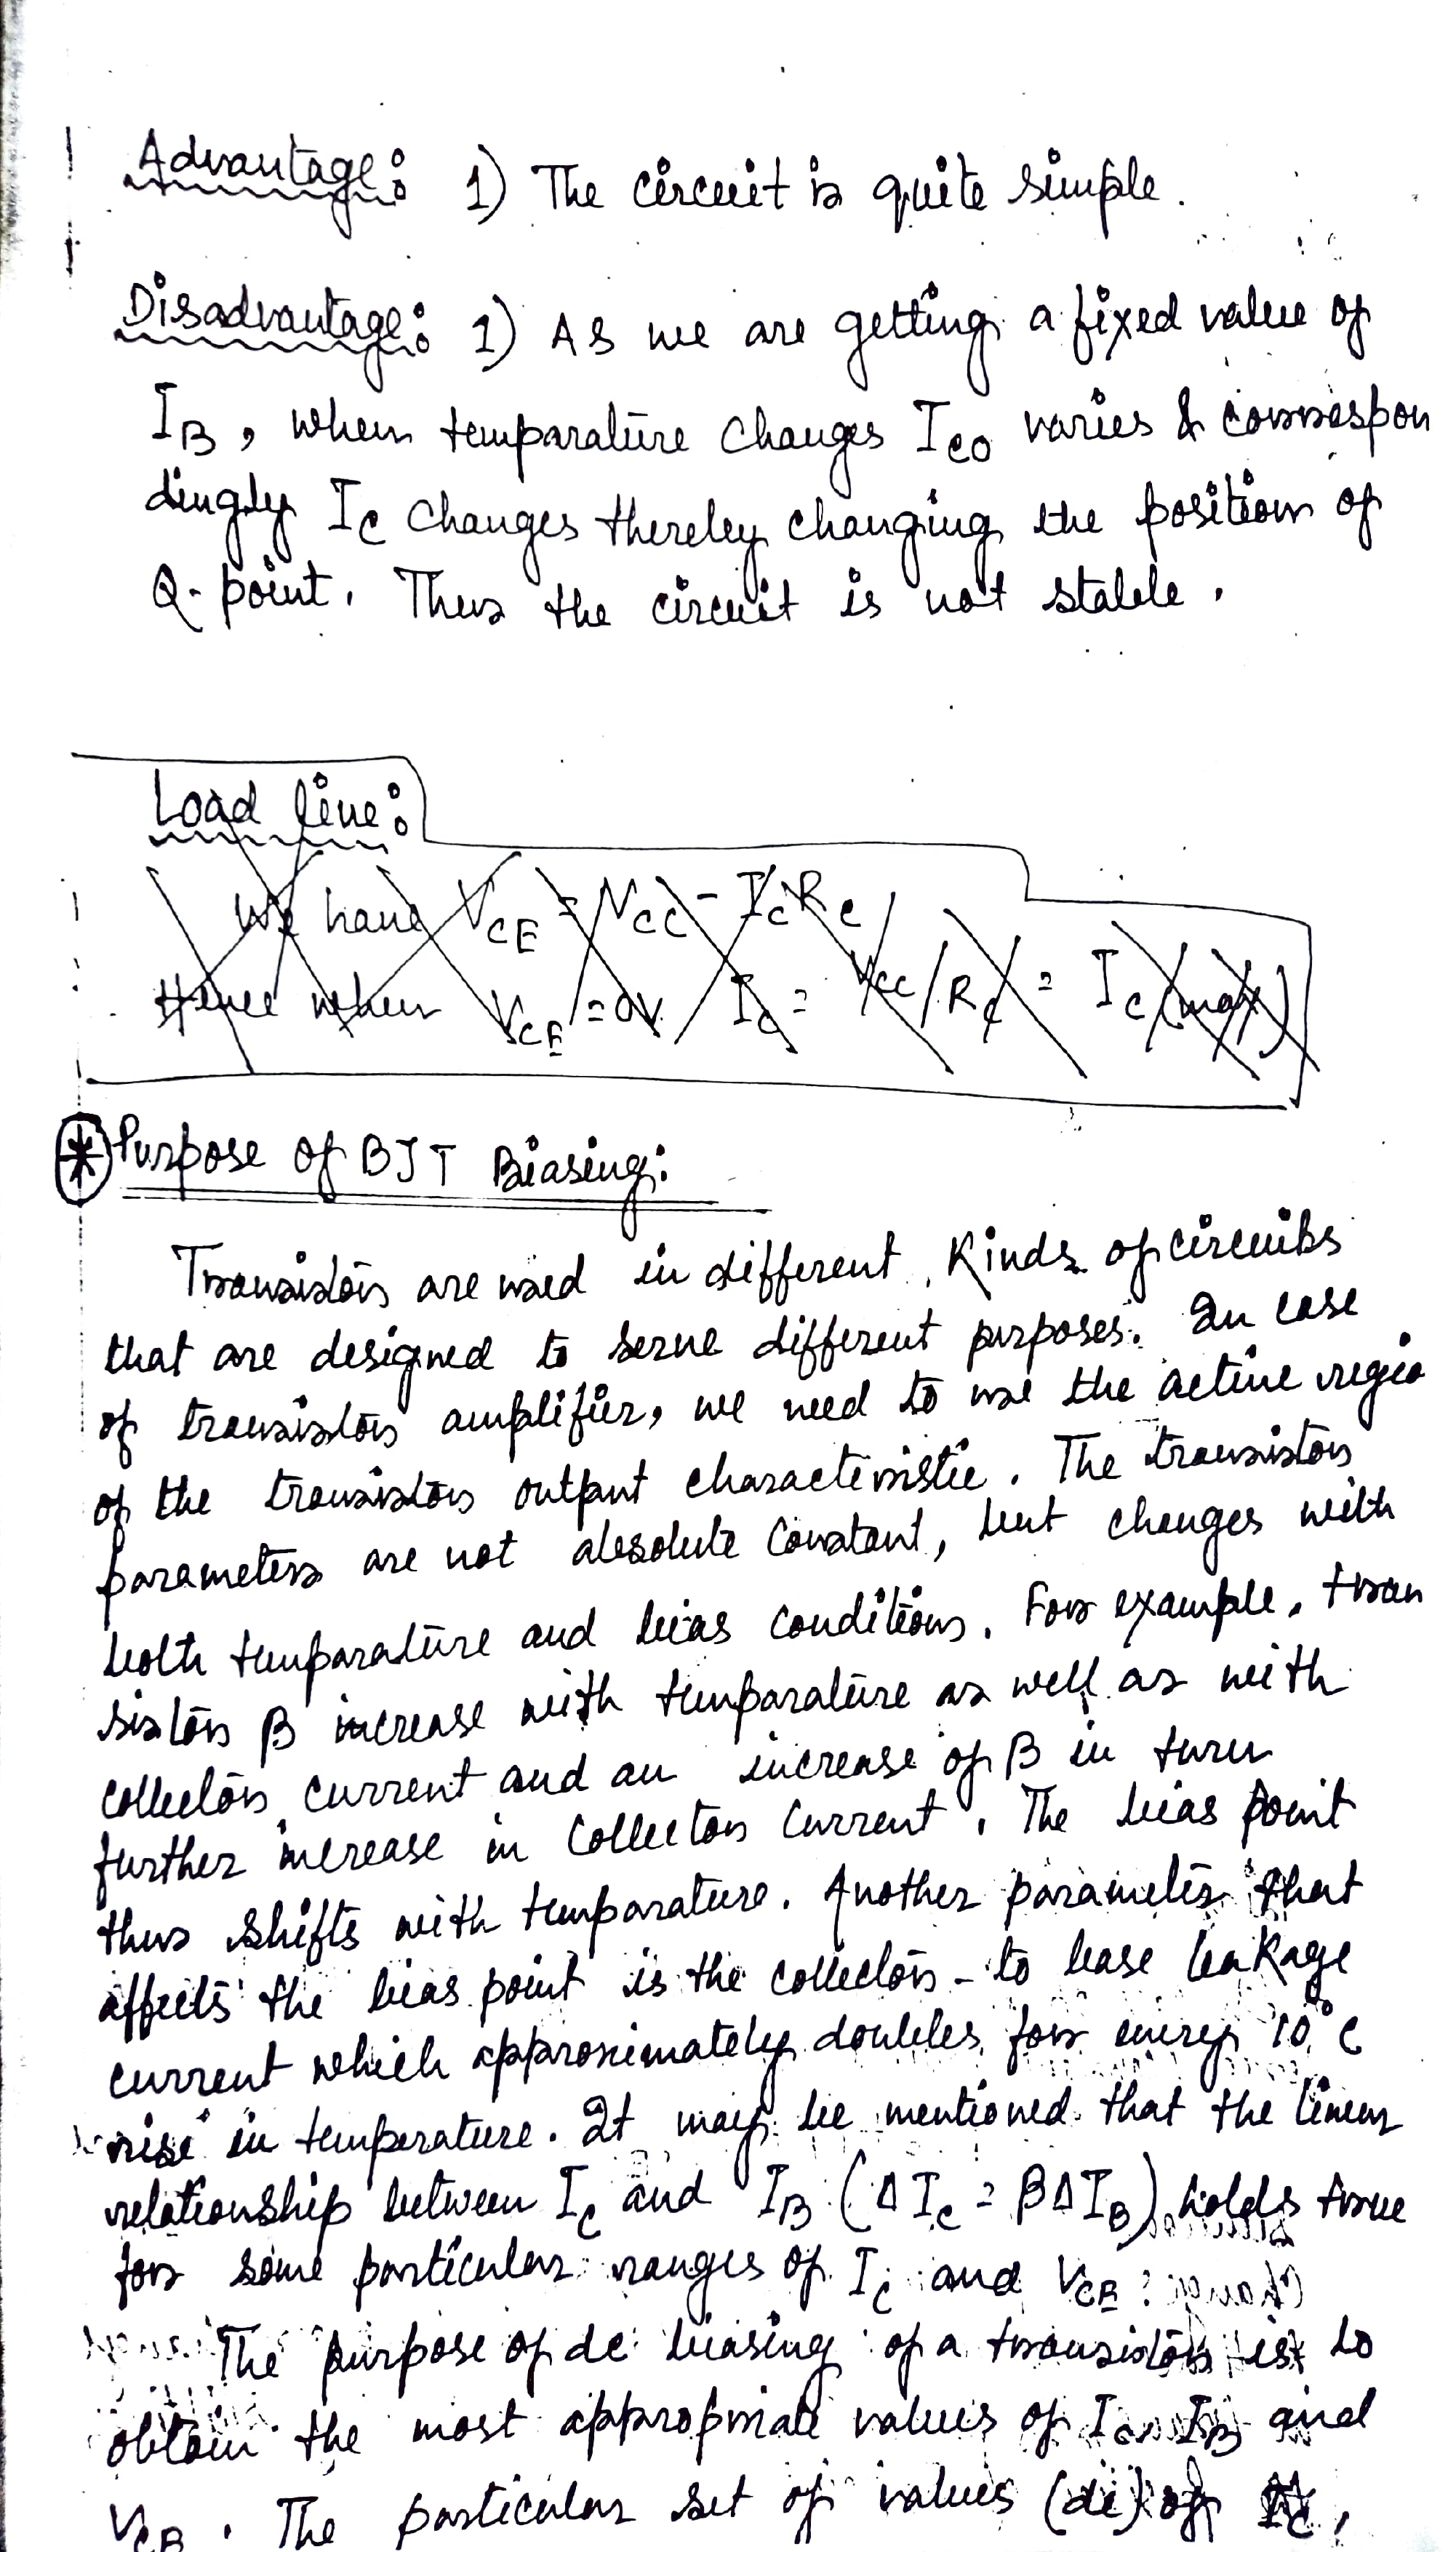 Advantage: 1) The circuit is quite simple.
Disadvantage: 1) As we are getting a fixed value of
I_B, when temparature changes I_CO varies & correspon
dingly I_C changes thereby changing the position of
Q-point. Thus the circuit is not stable.
Load line:
We have V_CE = V_CC - I_C R_C
Hence when V_CE = 0V. I_C = V_CC/R_C = I_C(max)
* Purpose of BJT Biasing:
Transistors are used in different Kinds of circuits
that are designed to serve different purposes. In case
of transistor amplifier, we need to use the active regio
of the transistor output characteristic. The transistor
parameters are not absolute constant, but changes with
both temparature and bias conditions. For example, tran
sistor β increase with temparature as well as with
collector current and an increase of β in turn
further increase in collector current. The bias point
thus shifts with temparature. Another parameter that
affects the bias point is the collector-to base leakage
current which approximately doubles for every 10°C
rise in temperature. It may be mentioned that the linear
relationship between I_C and I_B (ΔI_C = βΔI_B) holds true
for some particular ranges of I_C and V_CB.
The purpose of dc biasing of a transistor is to
obtain the most appropriate values of I_C, I_B and
V_CB. The particular set of values (dc) of I_C,